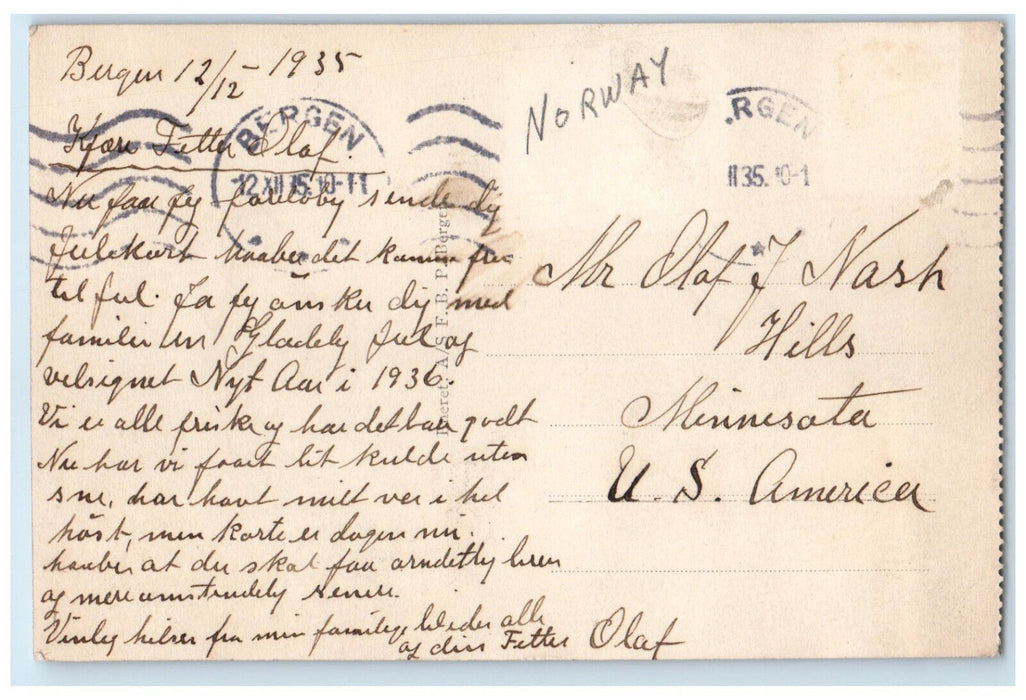 Bergen 12/12 - 1935
NORWAY
BERGEN
12 XII 35. 10-11
RGEN
II 35. 10-1
Kjære Fetter Olaf.
Nu faar jeg foreløby sende dig
Julekort haaber det kommer frem
til jul. Ja jeg önsker dig med
familie en Gladely Jul og
velsignet Nyt Aar i 1936.
Vi er alle friske og har det bare godt
Nu har vi faaet lit kulde uten
sne, har havt milt veer i hel
höst, men korte er dagen nu.
haaber at du skal faa ordently brev
og mere omstendely senere.
Venlig hilsen fra min familie, til eder alle
og din Fetter Olaf
Eneret: A/S F. B. P. Bergen
Mr Olaf J Nash
Hills
Minnesota
U. S. America